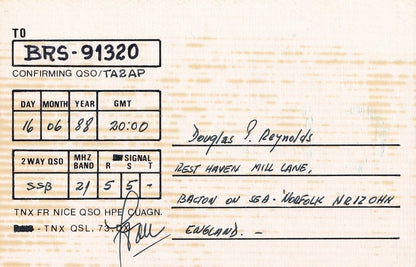 TO
BRS-91320
CONFIRMING QSO/TA2AP
DAY MONTH YEAR GMT
16 06 88 20:00
2 WAY QSO MHZ BAND R SIGNAL S T
SSB 21 5 5 -
TNX FR NICE QSO HPE CUAGN.
- TNX QSL, 73.
Douglas P. Reynolds
REST HAVEN MILL LANE,
BACTON ON SEA - NORFOLK NR12OHN
ENGLAND. -